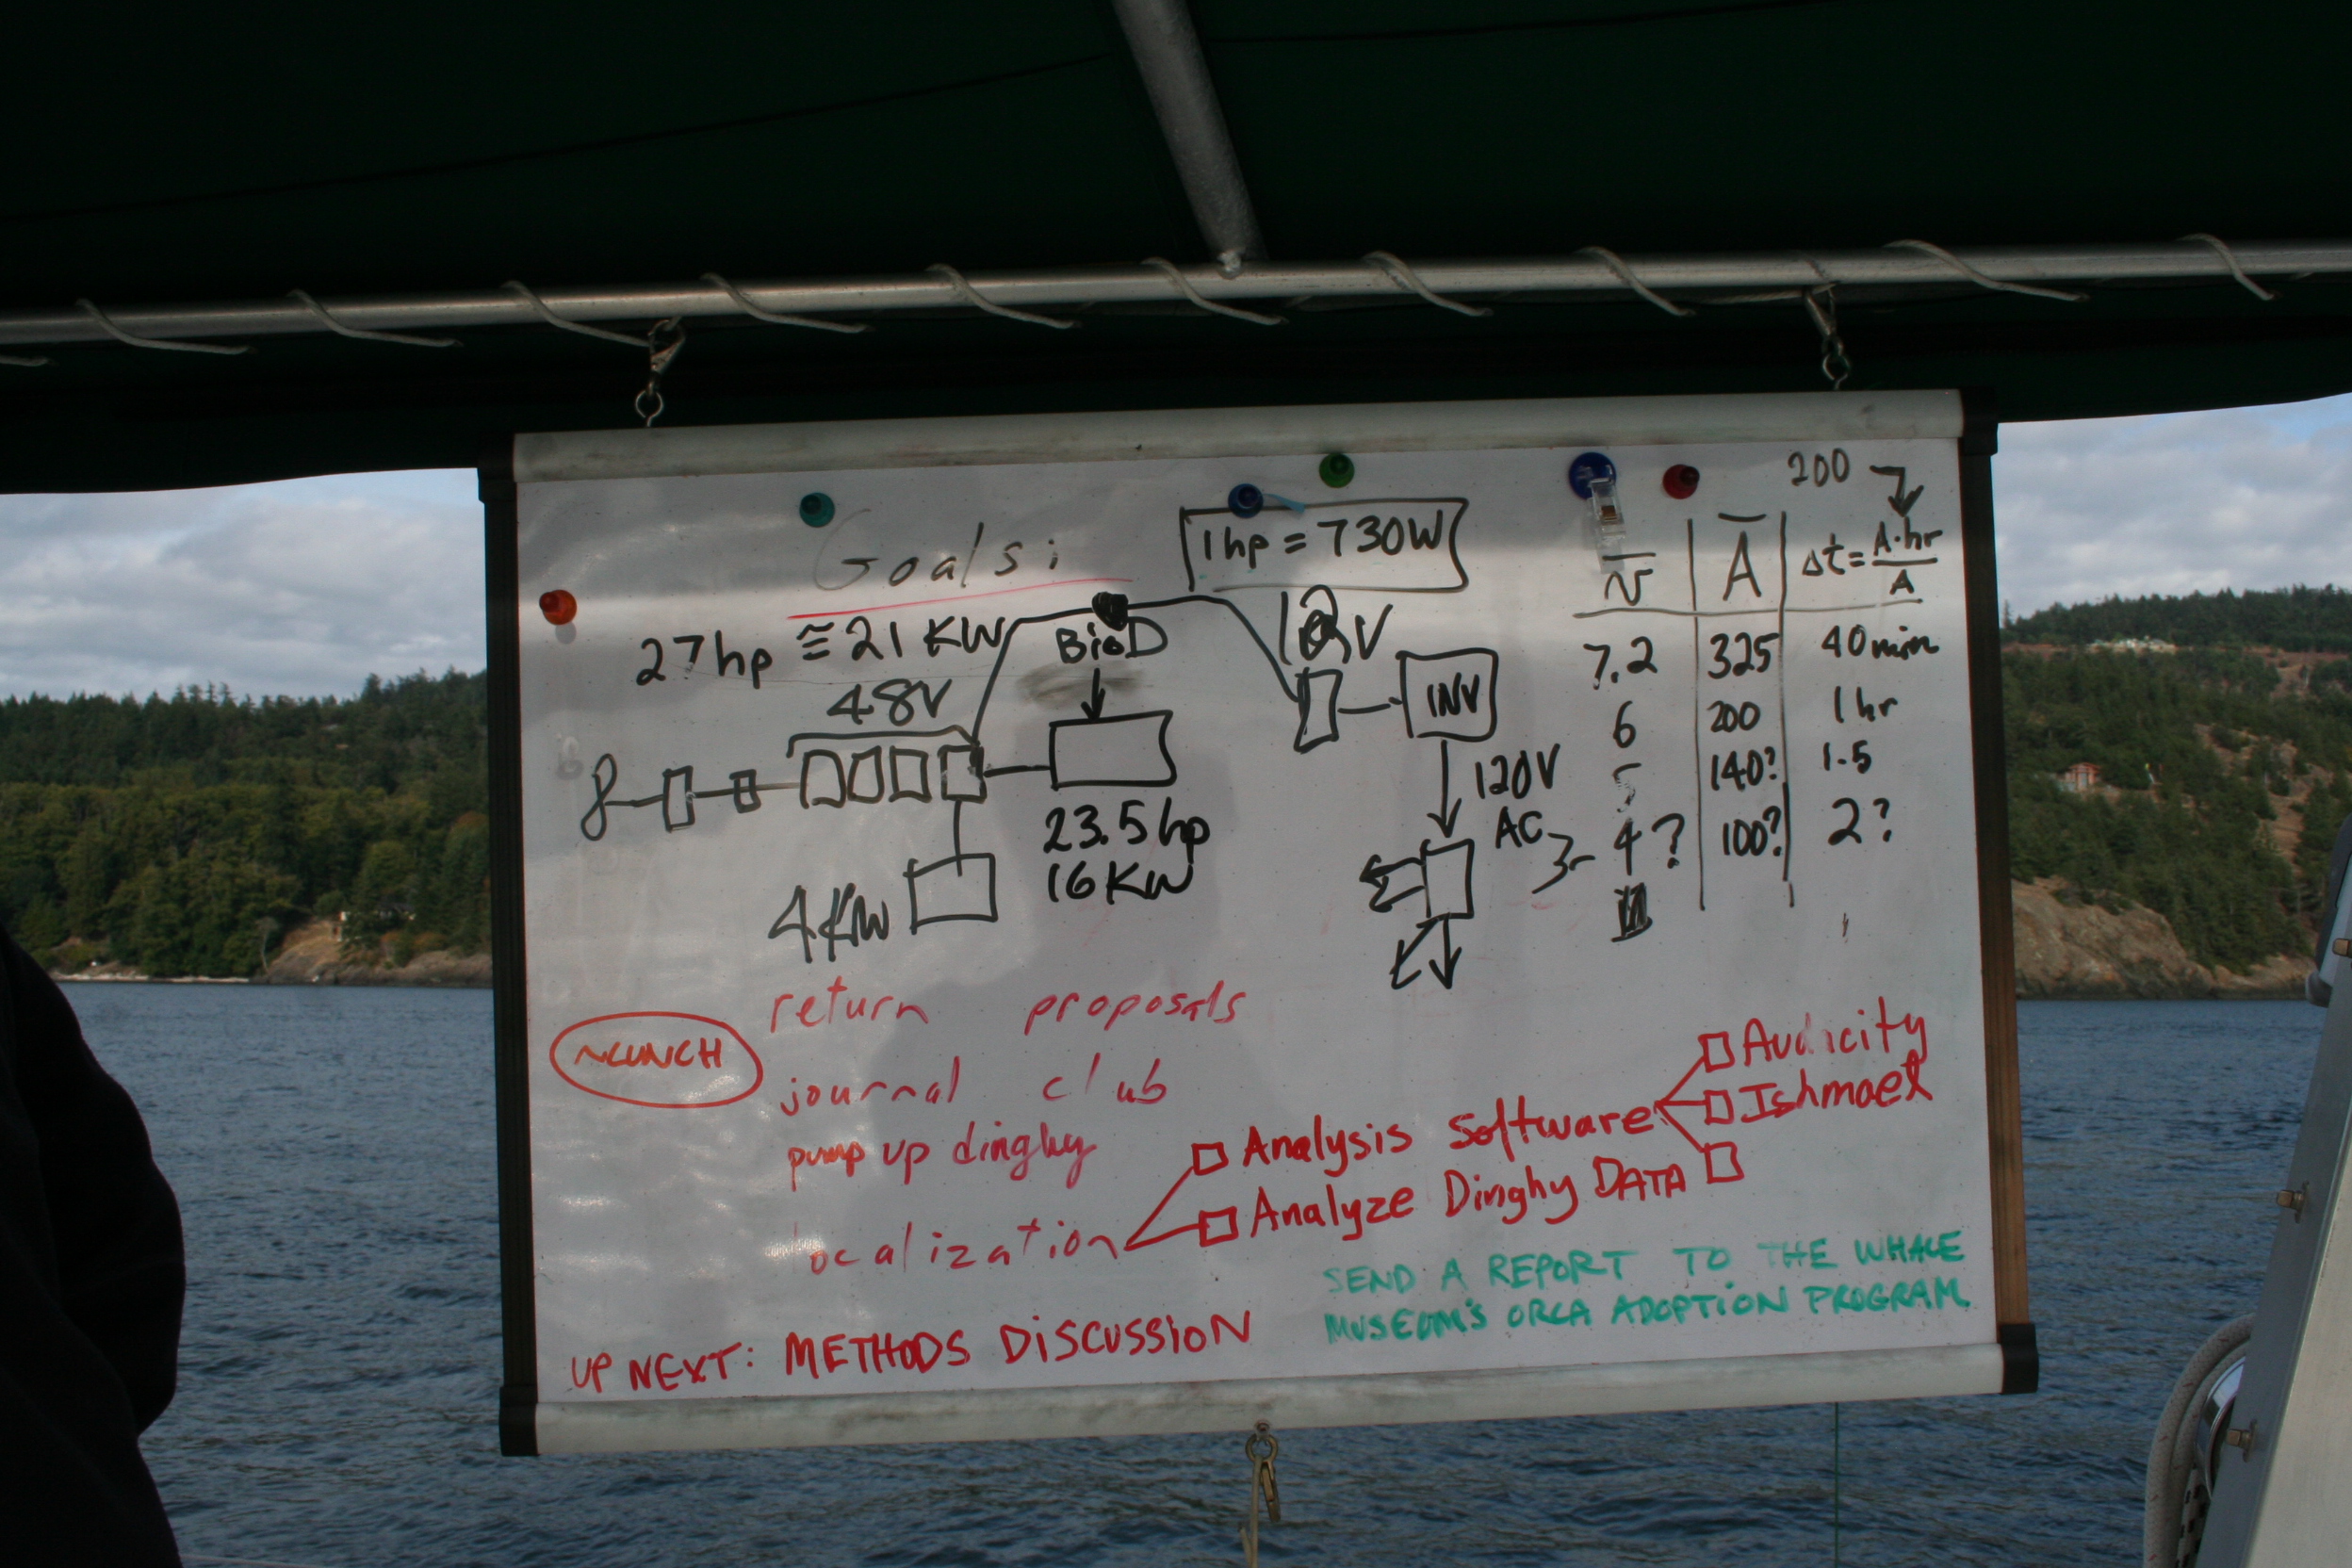 200
Goals:
1hp = 730W
v | A | Δt = A·hr / A
27hp ≅ 21 KW
BioD
12V
7.2 | 325 | 40 min
48V
INV
6 | 200 | 1 hr
120V
AC
5 | 140? | 1.5
23.5hp
16KW
4? | 100? | 2?
4KW
return proposals
~LUNCH
journal club
pump up dinghy
Analysis software
Audacity
Ishmael
localization
Analyze Dinghy DATA
SEND A REPORT TO THE WHALE
MUSEUM'S ORCA ADOPTION PROGRAM.
UP NEXT: METHODS DISCUSSION